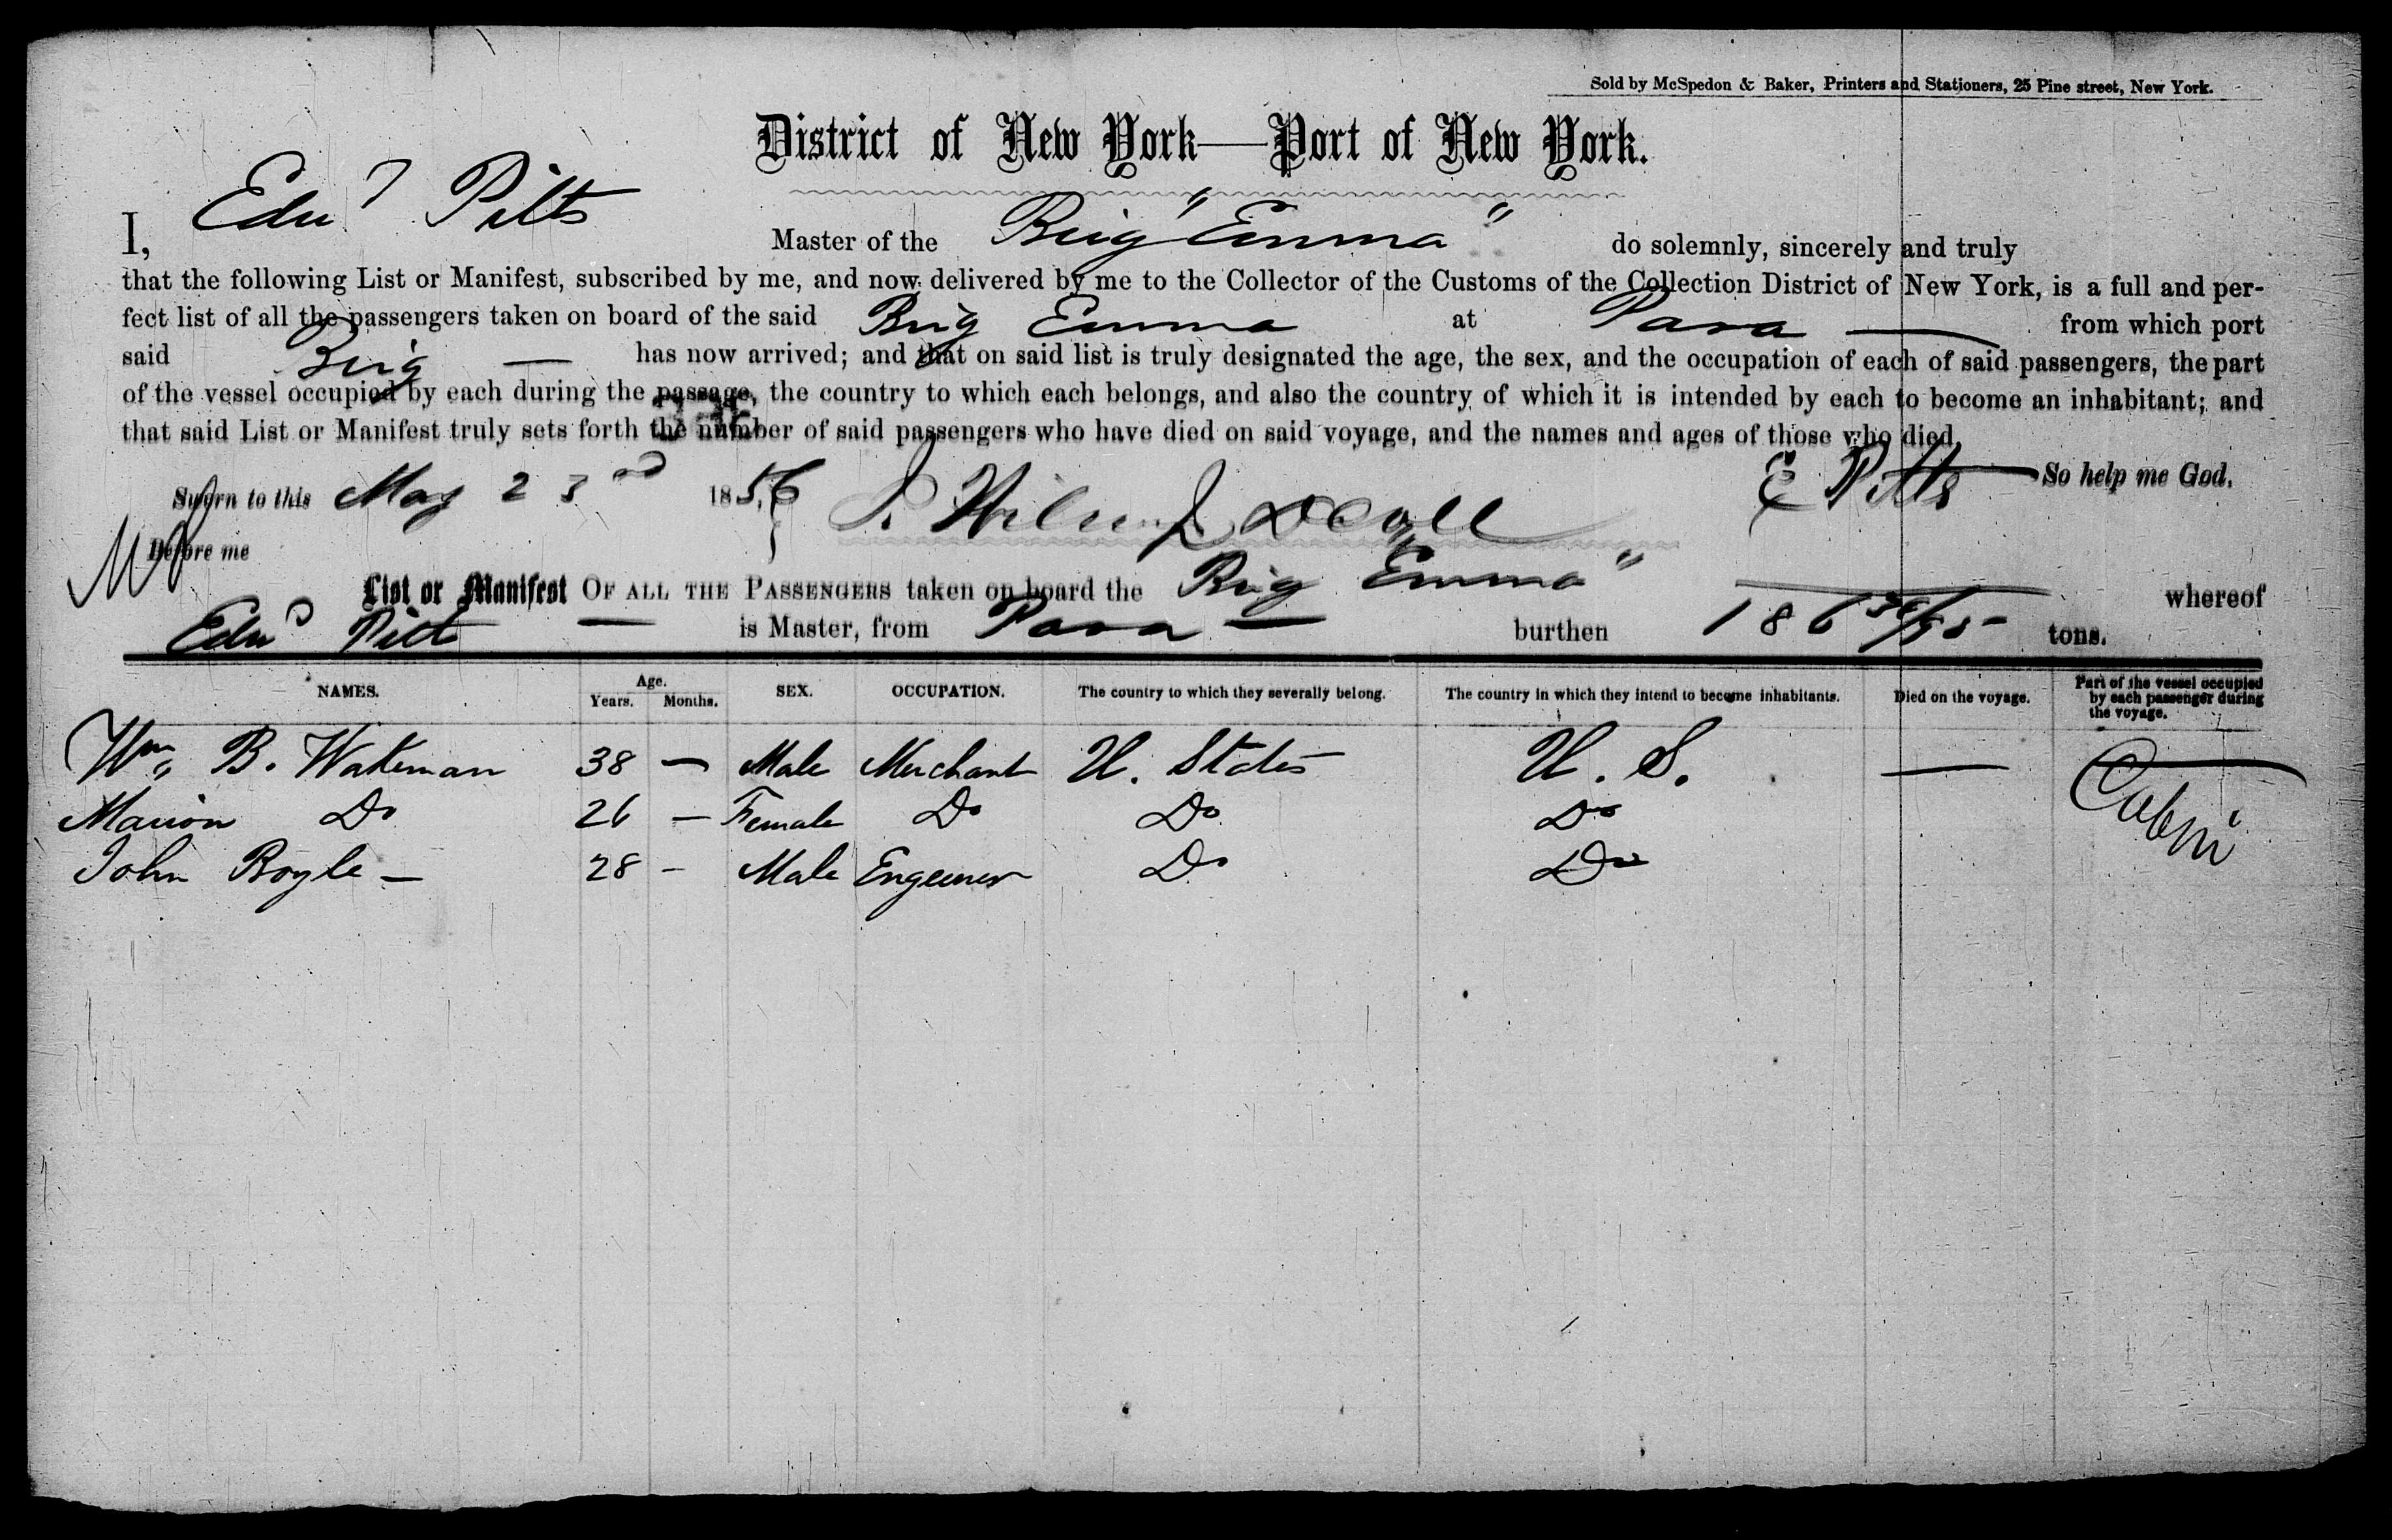 Sold by McSpedon & Baker, Printers and Stationers, 25 Pine street, New York.
District of New York—Port of New York.
I, Edwd Pitts Master of the Brig "Emma" do solemnly, sincerely and truly
that the following List or Manifest, subscribed by me, and now delivered by me to the Collector of the Customs of the Collection District of New York, is a full and per-
fect list of all the passengers taken on board of the said Brig Emma at Para — from which port
said Brig — has now arrived; and that on said list is truly designated the age, the sex, and the occupation of each of said passengers, the part
of the vessel occupied by each during the passage, the country to which each belongs, and also the country of which it is intended by each to become an inhabitant; and
that said List or Manifest truly sets forth the number of said passengers who have died on said voyage, and the names and ages of those who died.
Sworn to this May 23rd 1856 E Pitts So help me God.
Before me
List or Manifest OF ALL THE PASSENGERS taken on board the Brig "Emma" whereof
Edwd Pitt — is Master, from Para — burthen 186 36/95 tons.
NAMES. Age. Years. Months. SEX. OCCUPATION. The country to which they severally belong. The country in which they intend to become inhabitants. Died on the voyage. Part of the vessel occupied by each passenger during the voyage.
Wm B. Wakeman 38 — Male Merchant U. States U. S. — Cabin
Marion Do 26 — Female Do Do Do
John Boyle — 28 - Male Engeneer Do Do